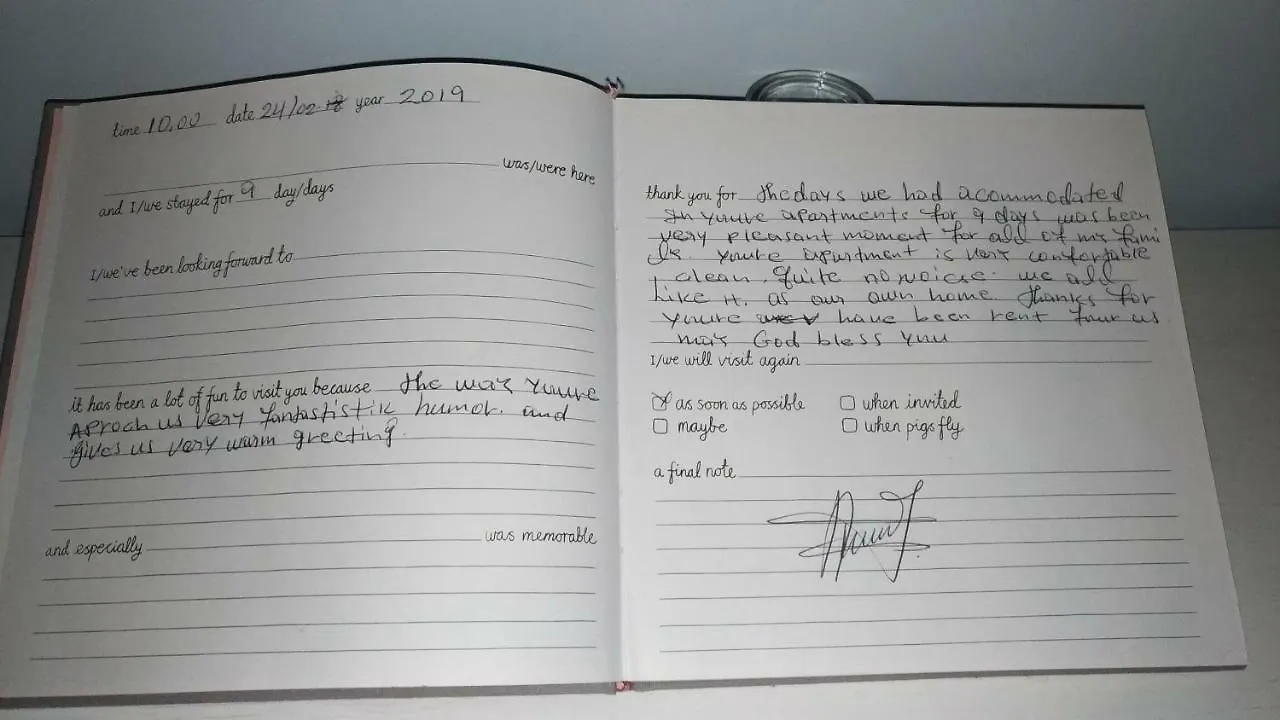 time 10.00 date 24/02 year 2019
was/were here
and I/we stayed for 9 day/days
I/we've been looking forward to
it has been a lot of fun to visit you because the way youre
Aproch us very fantastistik humor. and
gives us very warm greeting.
and especially was memorable
thank you for the days we had acommodated
In youre apartments for 9 days was been
very pleasant moment for all of my fami
ly. youre apartment is very comfortable
, clean, quite no noice. we all
Like it. as our own home. thanks for
youre have been rent four us
may God bless you
I/we will visit again
as soon as possible when invited
maybe when pigs fly
a final note